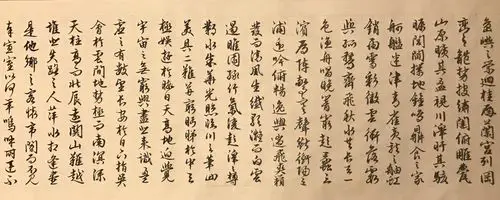 嶼之縈迴桂殿蘭宮列岡
巒之體勢披繡闥俯雕甍
山原曠其盈視川澤盱其駭
矚閭閻撲地鐘鳴鼎食之家
舸艦迷津青雀黃龍之舳虹
銷雨霽彩徹雲衢落霞
與孤鶩齊飛秋水共長天一
色漁舟唱晚響窮彭蠡之
濱雁陣驚寒聲斷衡陽之
浦遙吟俯暢逸興遄飛爽籟
發而清風生纖歌凝而白雲
遏睢園綠竹氣凌彭澤之樽
鄴水朱華光照臨川之筆四
美具二難并窮睇眄於中天
極娛遊於暇日天高地迥覺
宇宙之無窮興盡悲來識盈
虛之有數望長安於日下指吳
會於雲間地勢極而南溟深
天柱高而北辰遠關山難越
誰悲失路之人萍水相逢盡
是他鄉之客懷帝閽而不見
奉宣室以何年嗚呼時運不